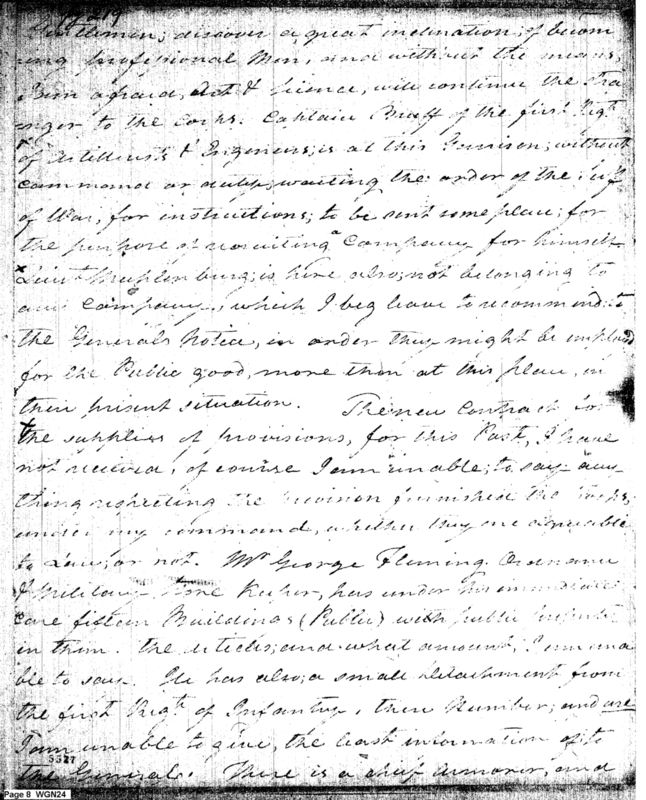 Gentlemen; discover a great inclination; of becom
ing professional Men, and without the means,
I am afraid, Art & Science, will continue the Stra
nger to the Corps. Captain Bruff of the first Regt
of Artillerists & Engeneers; is at this Garrison; without
command or duty; waiting the order of the
of War, for instructions; to be sent some place; for
the purpose of recruiting a Company for himself
Lieut Muhlenburg; is here also; not belonging to
any Company, which I beg leave to recommend to
the Generals Notice, in order they might be employed
for the Public good, more than at this place, in
their present situation. The new Contract for
the supplies of provisions, for this Post, I have
not received, of course I am unable; to say any
thing respecting the Provision furnished the Troops,
under my command, whether they are agreeable
to Law, or not. Mr George Fleming Ordnance
& Military Store Keeper, has under his immediate
care fifteen Buildings (Public) with public
in them. the Articles; and what amount, I am una
ble to say. He has also; a small detachment from
the first Regt of Infantry, their Number; and use
I am unable to give, the least information of to
the General. There is a chief Armorer, and
5527
Page 8 WGN24